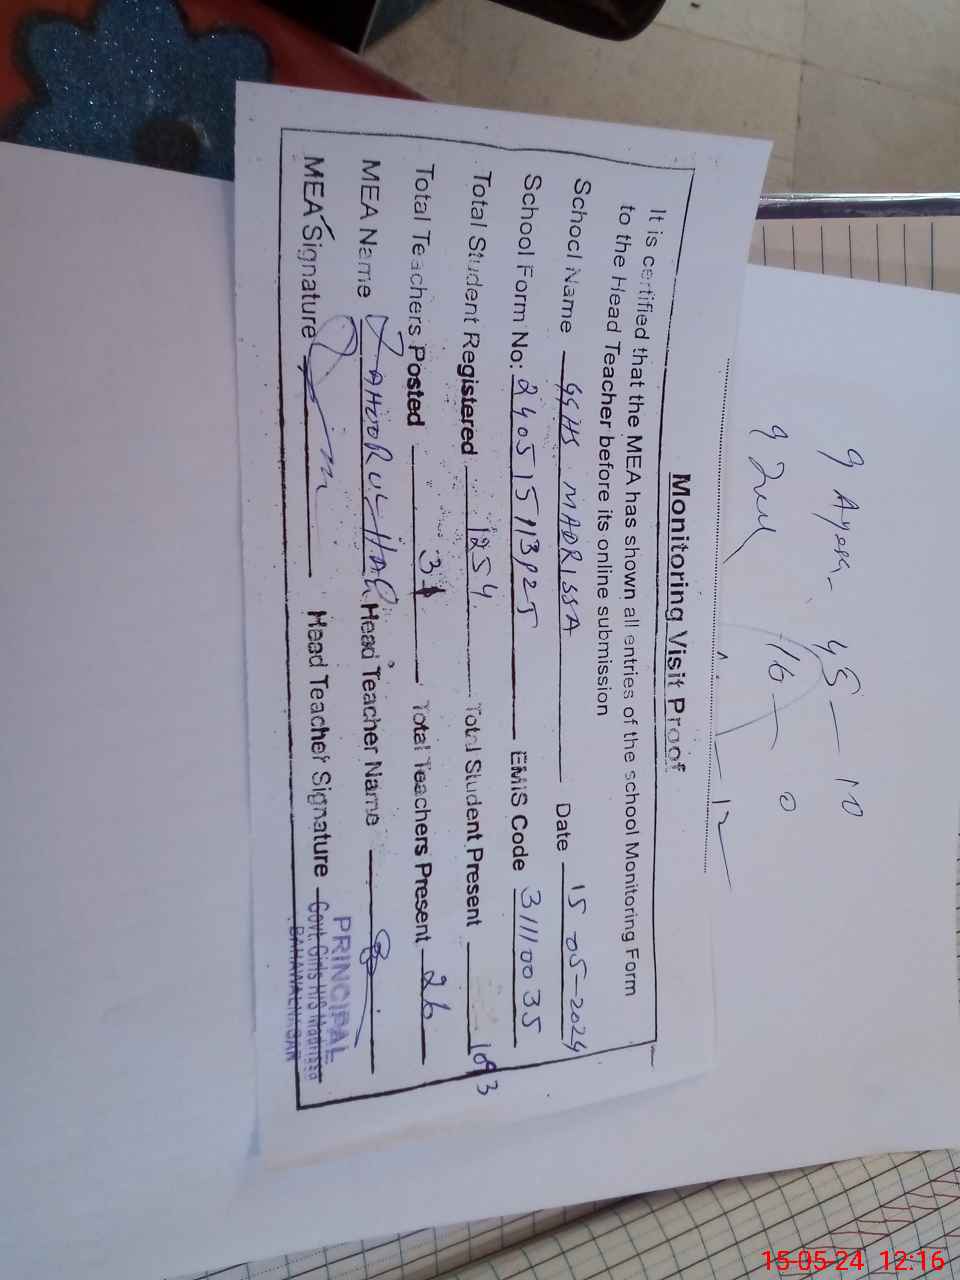 Monitoring Visit Proof
It is certified that the MEA has shown all entries of the school Monitoring Form
to the Head Teacher before its online submission
School Name GGHS MADRISSA Date 15-05-2024
School Form No: EMIS Code 31110035
Total Student Registered 1254 Total Student Present 1093
Total Teachers Posted 31 Total Teachers Present 26
MEA Name ZAHOOR UL HAQ Head Teacher Name
MEA Signature Head Teacher Signature
PRINCIPAL
Govt. Girls H/S Madrissa
BAHAWALNAGAR
9 Ayesha - 45 - 10
9 16 - 0
12
15-05-24 12:16